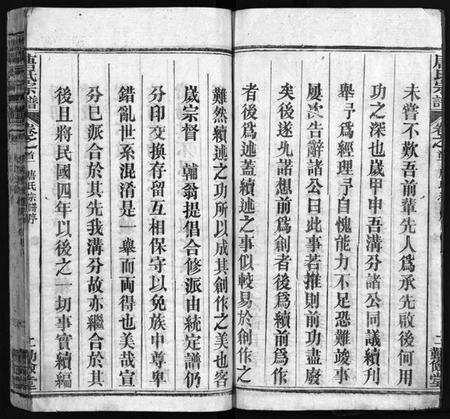 唐氏宗譜
卷之首
未嘗不歎吾前輩先人爲承先啟後何用
功之深也歲甲申吾溝分諸公同議續刋
舉予爲經理予自愧能力不足恐難竣事
屢次告辭諸公曰此事若推則前功盡廢
矣後遂允諾想前爲創者後爲續前爲作
者後爲述蓋續述之事似較易於創作之
難然續述之功所以成其創作之美也客
歲宗督 輔翁提倡合修派由統定譜仍
分印交換存留互相保守以免族中尊卑
錯亂世系混淆是一舉而両得也美哉宣
分巳派合於其先我溝分故亦繼合於其
後且將民國四年以後之一切事實續編
唐氏宗譜
卷之首 唐氏宗譜序